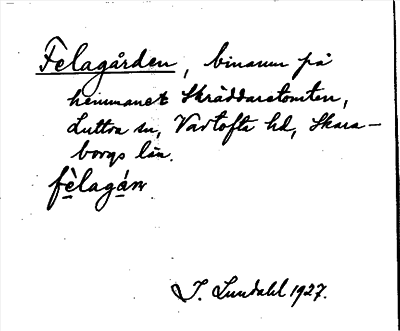 Felagården, binamn på
hemmanet Skräddaretomten,
Luttra sn, Vartofta hd, Skara-
borgs län.
fèlagán
I. Lundahl 1927.